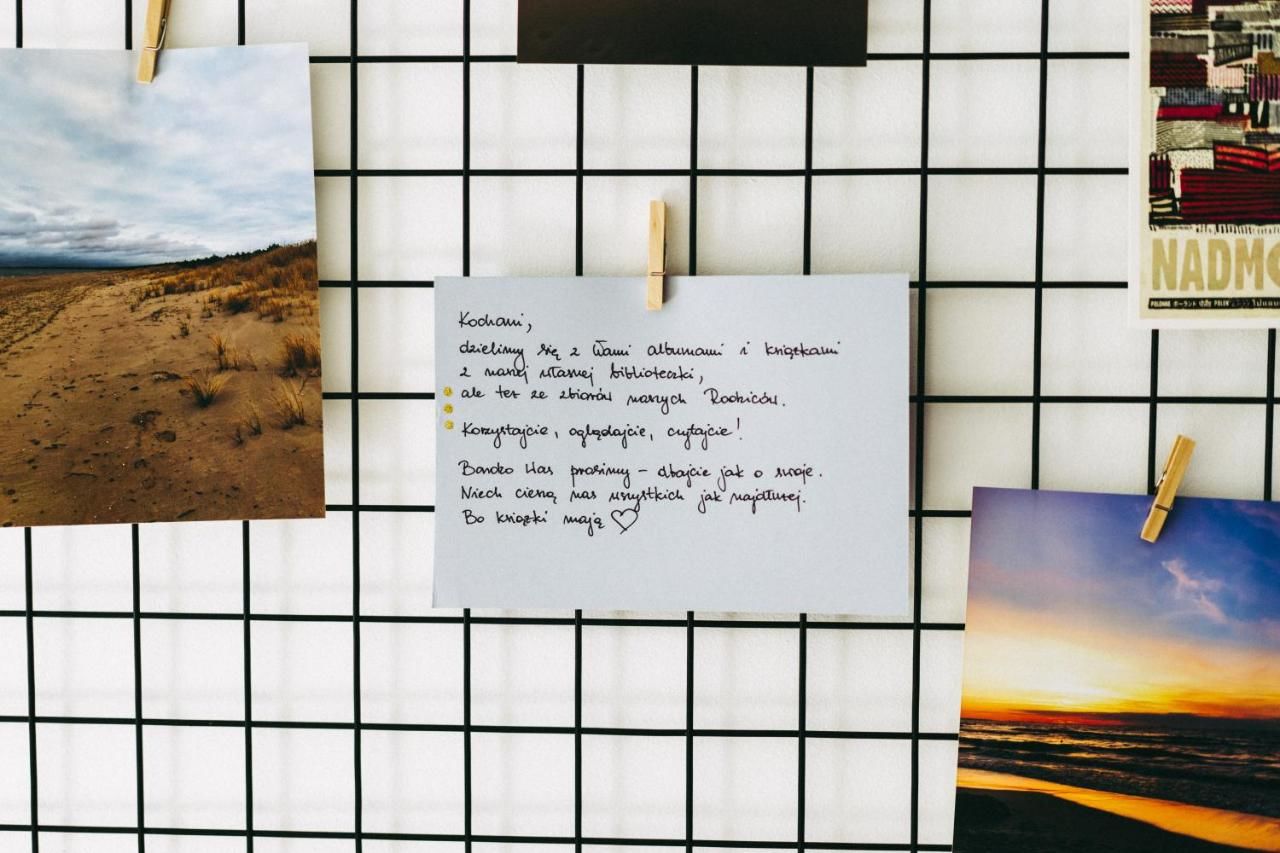 Kochani,
dzielimy się z Wami albumami i książkami
z naszej własnej biblioteczki,
ale też ze zbiorów naszych Rodziców.
Korzystajcie, oglądajcie, czytajcie!
Bardzo Was prosimy – dbajcie jak o swoje.
Niech cieszą nas wszystkich jak najdłużej.
Bo książki mają ♡
NADMO
POLSKA ポーランド